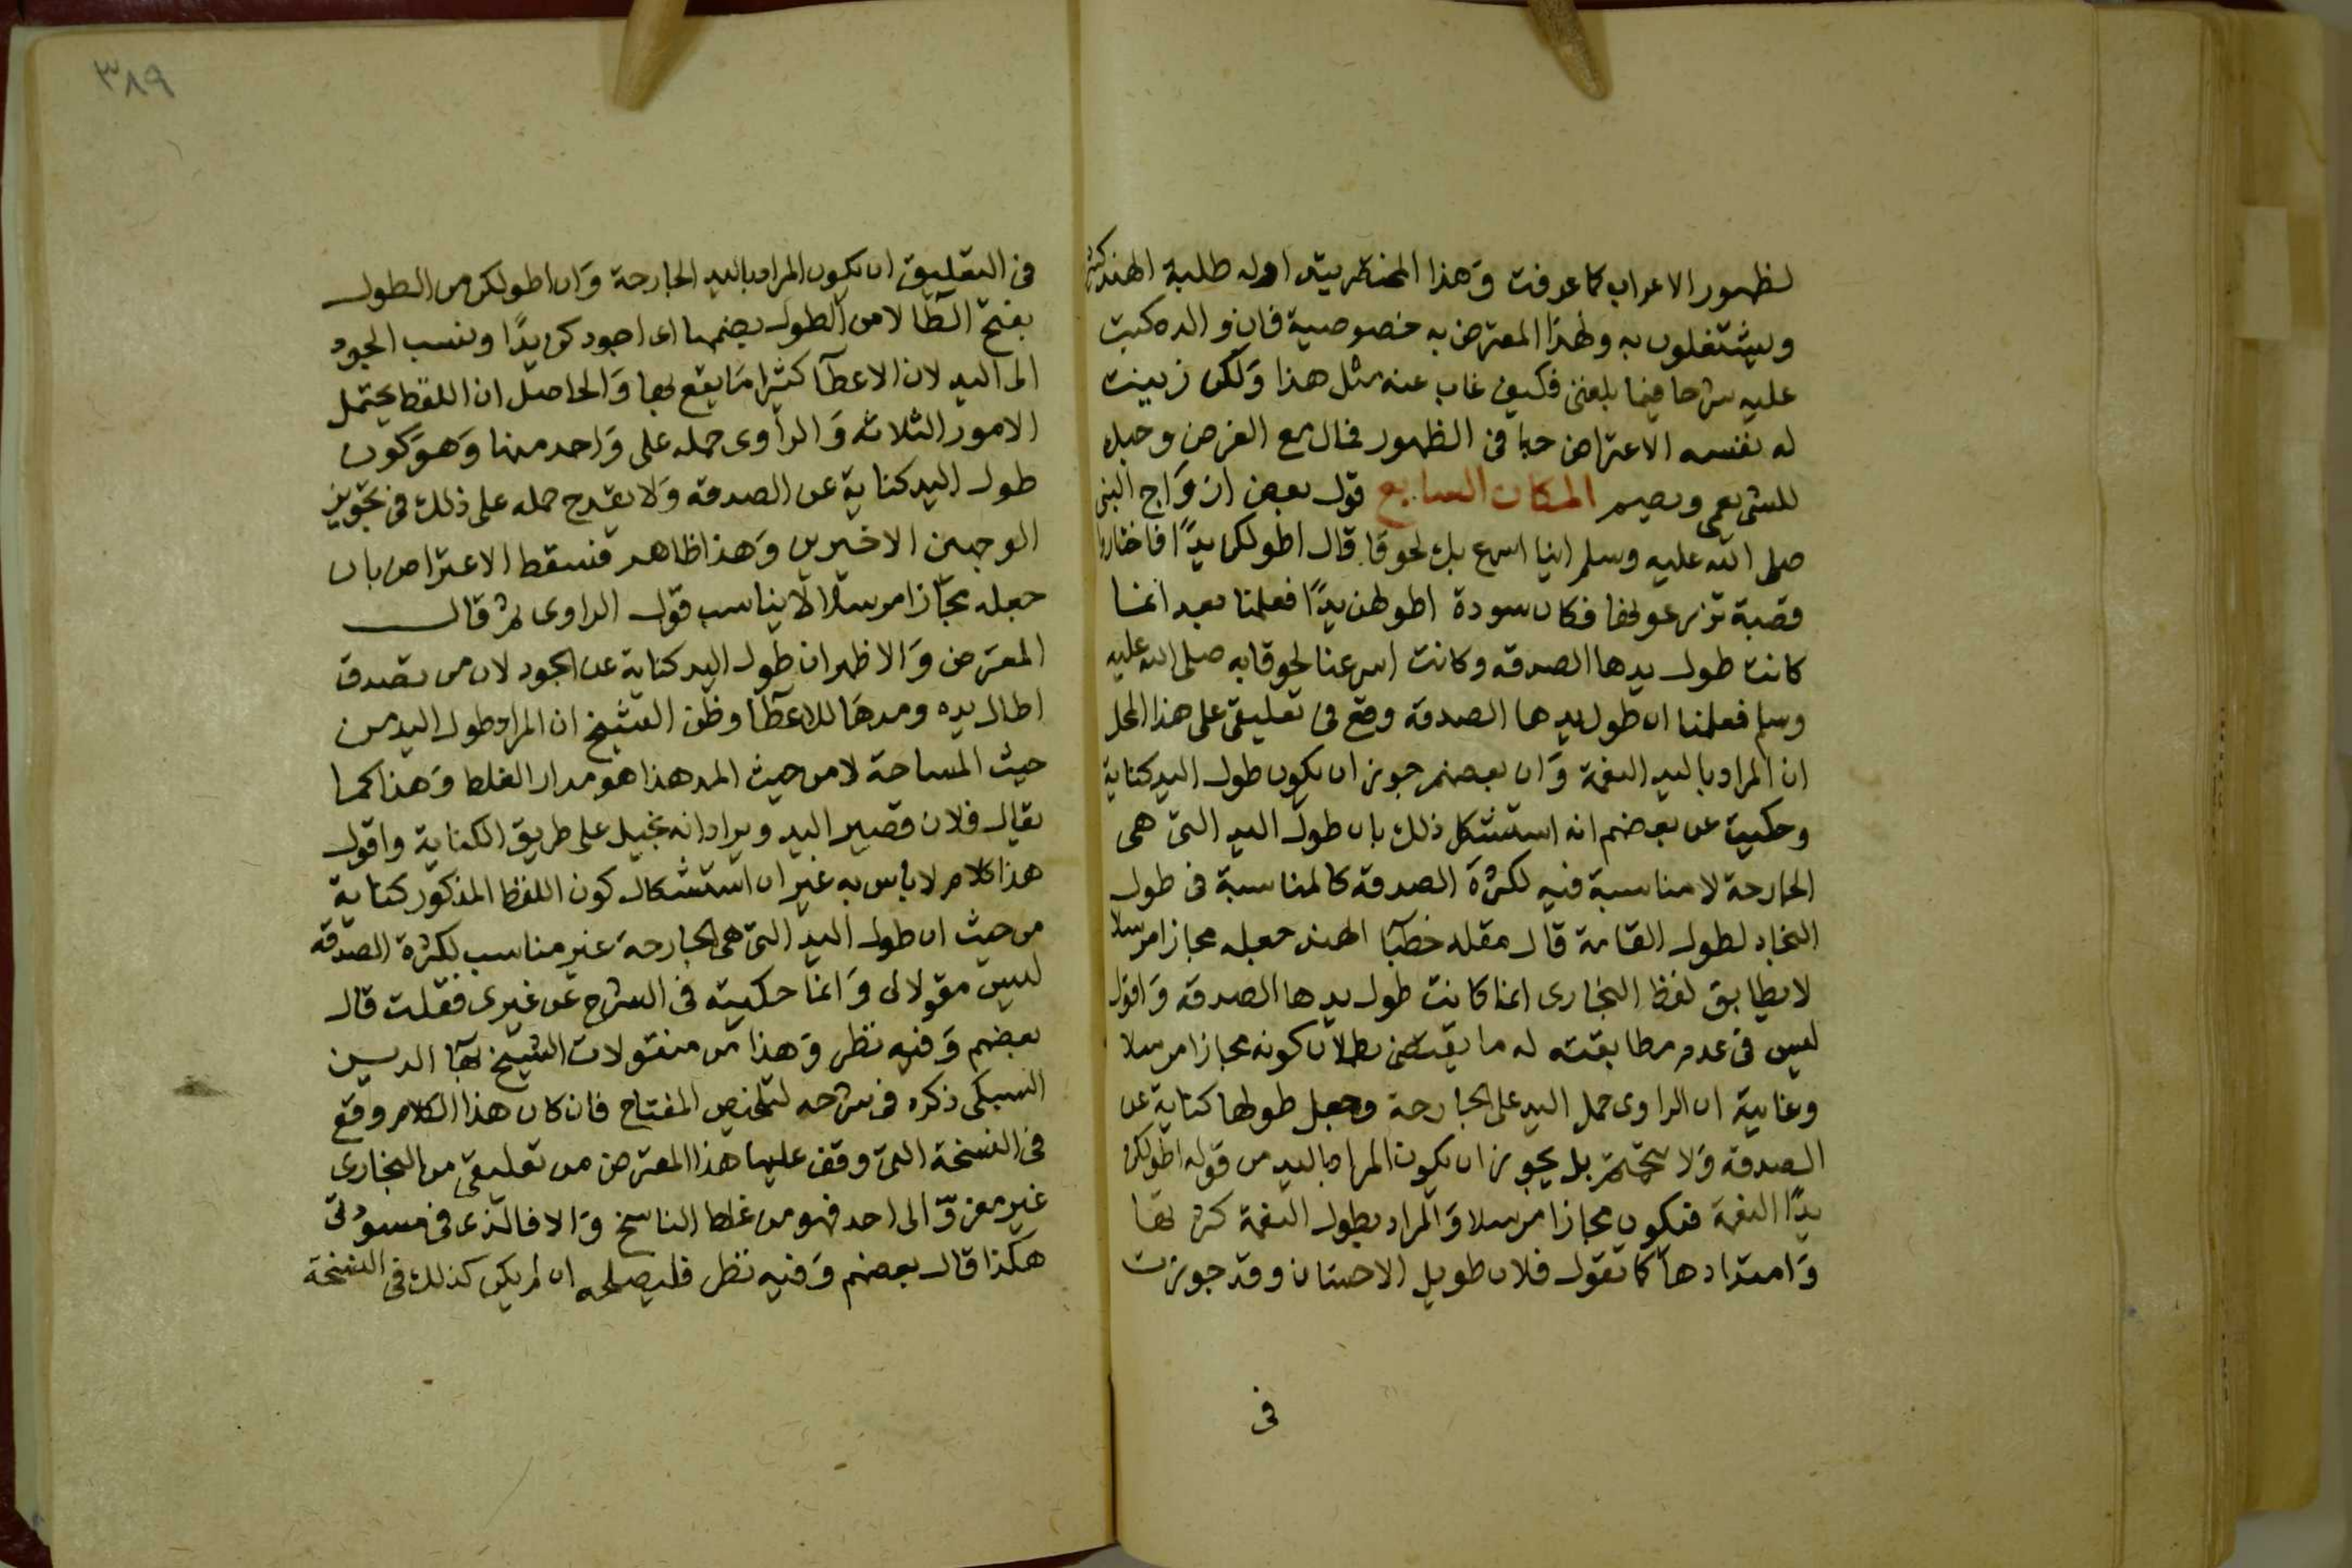 لظهور الاعراب كما عرفت وَهذا المختصر يتداوله طلبة الهند كثيرا
ويشتغلون به ولهذا المعترض به خصوصية فان والده كتب
عليه شرحا فيما بلغنى فكيف غاب عنه مثل هذا وَلكن زينت
له نفسه الاعتراض حبا فى الظهور فمال مع الغرض وحبك
للشى يعمى ويصم المكان السابع قول بعض ازوَاج النبى
صلى الله عليه وسلم اينا اسرع بك لحوقا قال اطولكن يدًا فاخذوا
قصبة تزرعونها فكان سودة اطولهن يدًا فعلمنا بعد انما
كانت طول يدها الصدقه وكانت اسرعنا لحوقا به صلى الله عليه
وسلم فعلمنا ان طول يدها الصدقة وقع فى تعليقى على هذا المحل
ان المراد باليد النعمة وَان بعضهم جوز ان يكون طول اليد كناية
وحكيت عن بعضهم انه استشكل ذلك بان طول اليد التى هى
الجارحة لا مناسبة فيه لكثرة الصدقه كالمناسبة فى طول
النجاد لطول القامة قال مقله خطبآ الهند جعله مجازا مرسلا
لا يطابق لفظ البخارى انما كانت طول يدها الصدقه وَاقول
ليس فى عدم مطابقته له ما يقتضى بطلان كونه مجازا مرسلا
وغاية ان الراوى حمل اليد على الجارحة وجعل طولها كناية عن
الصدقه وَلا يتحتم بل يجوز ان يكون المراد باليد من قوله اطولكن
يدًا النعمة فيكون مجازا مرسلا وَالمراد بطول النعمة كثرتها
وَامتدادها كما تقول فلان طويل الاحسان وقد جوزت
فى
٣٨٩
فى التعليق ان يكون المراد باليد الجارحة وَان اطولكن من الطول
بفتح الطا لا من الطول بضمها اى اجودكن يدًا ونسب الجود
الى اليد لان الاعطآ كثيرا مَا يقع بها وَالحاصل ان اللفظ يحتمل
الامور الثلاثه وَالراوى حمله على وَاحد منها وَهوَ كون
طول اليد كناية عن الصدقه وَلا يقدح حمله على ذلك فى تجويز
الوجهين الاخيرين وَهذا ظاهر فسقط الاعتراض بان
جعله مجازا مرسلا لا يناسب قول الراوى ثم قال
المعترض وَالاظهر ان طول اليد كناية عن الجود لان من تصدق
اطال يده ومدهَا للاعطآ وظن الشيخ ان المراد طول اليد من
حيث المساحة لا من حيث المد هذا هو مدار الغلط وَهذا كما
يقال فلان قصير اليد ويراد انه بخيل على طريق الكناية واقول
هذا كلام لا باس به غير ان استشكال كون اللفظ المذكور كناية
من حيث ان طول اليد التى هى الجارحة غير مناسب لكثرة الصدقه
ليس مقولا لى وَانما حكيته فى الشرح عن غيرى فقلت قال
بعضهم وَفيه نظر وَهذا من منقولات الشيخ بهآ الدين
السبكى ذكره فى شرحه لتلخيص المفتاح فان كان هذا الكلام وقع
فى النسخة التى وقف عليها هذا المعترض من تعليقى من البخارى
غير معزوّ الى احد فهو من غلط الناسخ وَالا فالذى فى مسودتى
هكذا قال بعضهم وَفيه نظر فليصلحه ان لم يكن كذلك فى النسخة